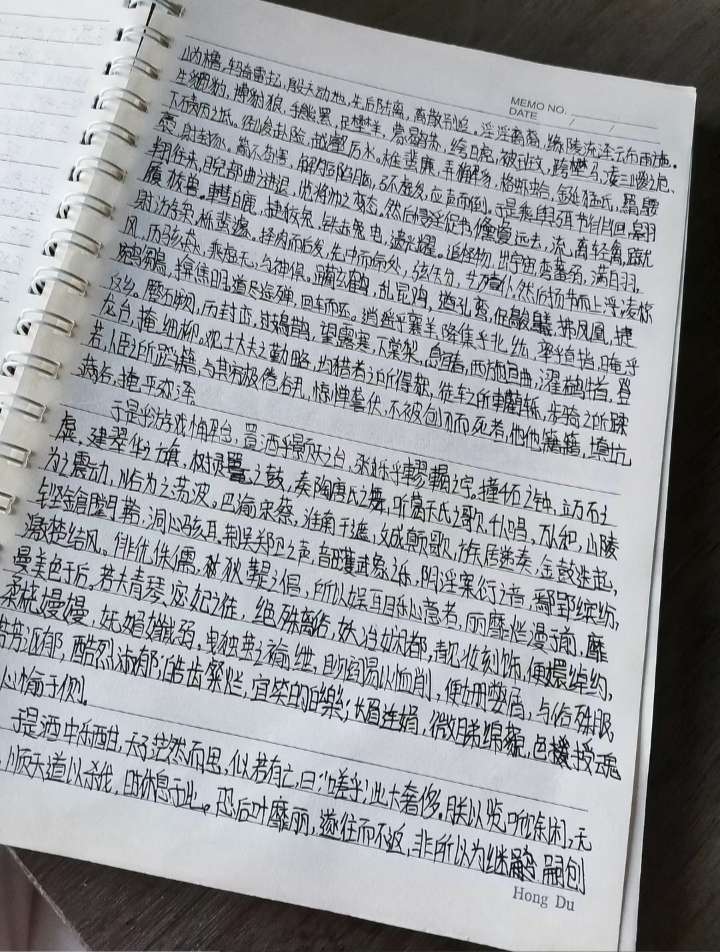 MEMO NO.
DATE / /
山为橹，车骑雷起，殷天动地，先后陆离，离散别追。淫淫裔裔，缘陵流泽，云布雨施。
生貔豹，搏豺狼，手熊罴，足壄羊，蒙鹖苏，绔白虎，被班文，跨壄马，凌三嵕之危，
下碛历之坻。径峻赴险，越壑厉水。椎蜚廉，弄獬豸，格虾蛤，鋋猛氏，羂騕
褭，射封豕。箭不苟害，解脰陷脑，弓不虚发，应声而倒。于是乘舆弭节徘徊，翱
翔往来，睨部曲之进退，览将帅之变态。然后侵淫促节，儵敻远去，流离轻禽，蹴
履狡兽。轊白鹿，捷狡兔，轶赤电，遗光耀。追怪物，出宇宙，弯蕃弱，满白羽，
射游枭，栎蜚遽。择肉而后发，先中而命处，弦矢分，艺殪仆。然后扬节而上浮，凌惊
风，历骇猋，乘虚无，与神俱。躏玄鹤，乱昆鸡，遒孔鸾，促鵔鸃，拂凤凰，捷
鹓雏，揜焦明。道尽途殚，回车而还。消遥乎襄羊，降集乎北纮，率乎直指，晻乎
反乡。蹶石阙，历封峦，过鳷鹊，望露寒，下棠梨，息宜春，西驰宣曲，濯鹢牛首，登
龙台，掩细柳。观士大夫之勤略，均猎者之所得获，徒车之所轥轹，步骑之所蹂
若，人臣之所蹈籍，与其穷极倦谻，惊惮詟伏，不被创刃而死者，他他籍籍，填坑
满谷，掩平弥泽
于是乎游戏懈怠，置酒乎颢天之台，张乐乎轇輵之宇。撞千石之钟，立万石之
虡。建翠华之旗，树灵鼍之鼓，奏陶唐氏之舞，听葛天氏之歌，千人唱，万人和，山陵
为之震动，川谷为之荡波。巴渝宋蔡，淮南干遮，文成颠歌，族居递奏，金鼓迭起，
铿鎗闛鞈，洞心骇耳。荆吴郑卫之声，韶濩武象之乐，阴淫案衍之音，鄢郢缤纷，
激楚结风。俳优侏儒，狄鞮之倡，所以娱耳目乐心意者，丽靡烂漫于前，靡
曼美色于后，若夫青琴、宓妃之徒，绝殊离俗，妖冶娴都，靓妆刻饰，便嬛绰约，
柔桡嫚嫚，妩媚孅弱，曳独茧之褕绁，眇阎易以恤削，便姗嫳屑，与俗殊服，
芬芳沤郁，酷烈淑郁；皓齿粲烂，宜笑的皪；长眉连娟，微睇绵藐，色授魂
心愉于侧。
于是酒中乐酣，天子茫然而思，似若有亡，曰：“嗟乎！此大奢侈。朕以览听馀闲，无
，顺天道以杀伐，时休息于此。恐后叶靡丽，遂往而不返，非所以为继嗣创
Hong Du